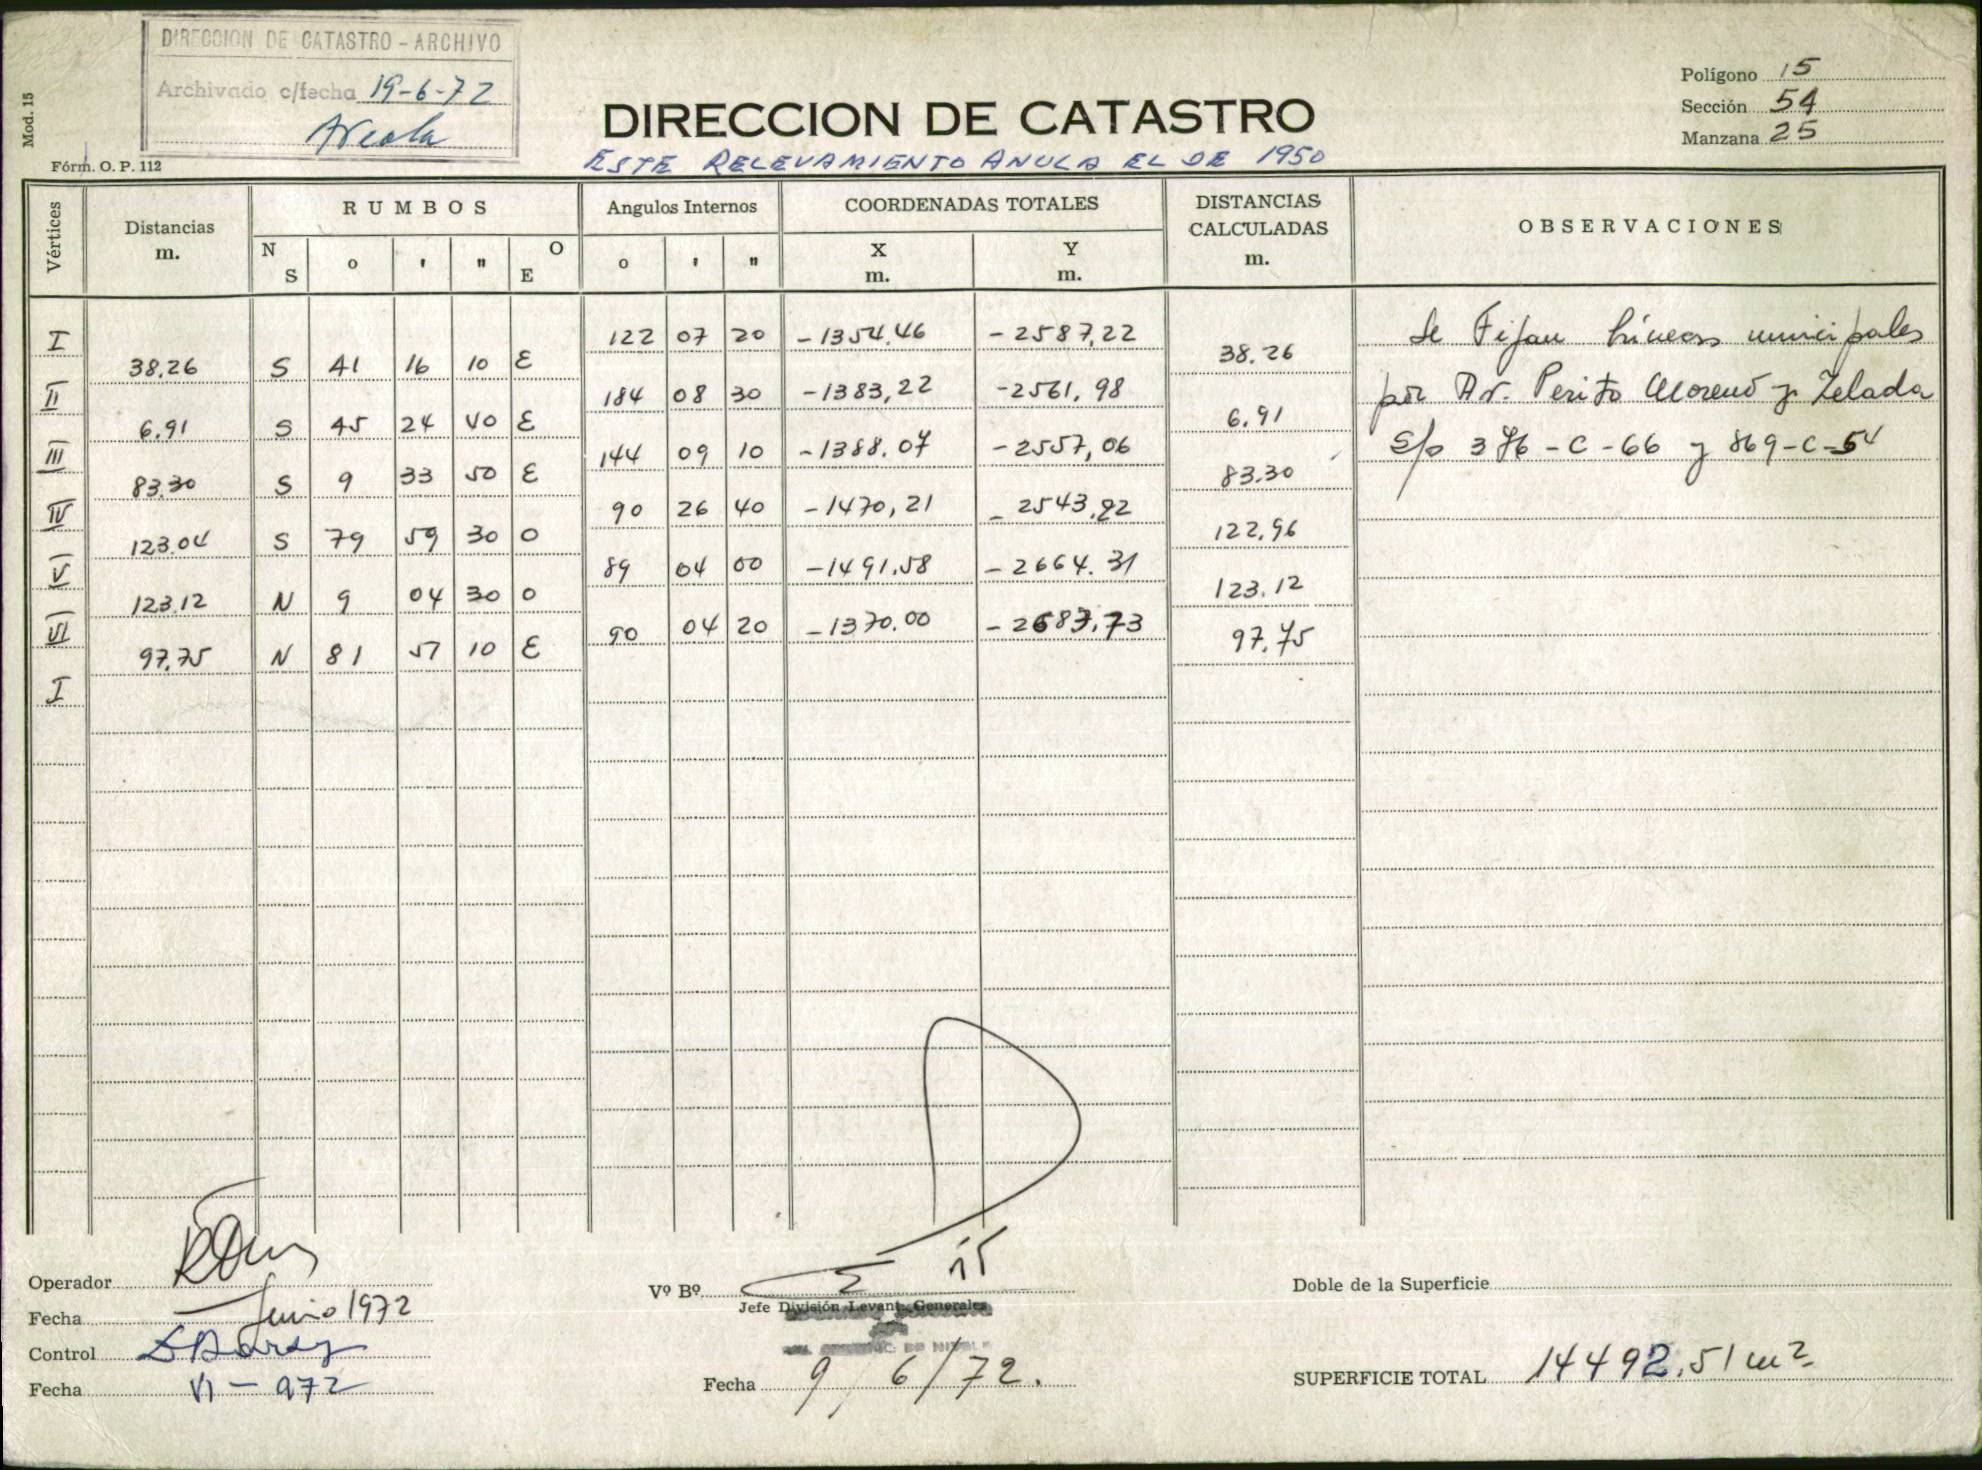 DIRECCION DE CATASTRO - ARCHIVO
Archivado c/fecha 19-6-72
Mod. 15
Fórm. O. P. 112
DIRECCION DE CATASTRO
ESTE RELEVAMIENTO ANULA EL DE 1950
Polígono 15
Sección 54
Manzana 25
Vértices Distancias m. RUMBOS Angulos Internos COORDENADAS TOTALES DISTANCIAS CALCULADAS m. OBSERVACIONES
N S o ' " O E o ' " X m. Y m.
I 122 07 20 -1354.46 -2587,22
38.26 S 41 16 10 E 38.26
II 184 08 30 -1383,22 -2561,98
6.91 S 45 24 40 E 6.91
III 144 09 10 -1388.07 -2557,06
83.30 S 9 33 50 E 83.30
IV 90 26 40 -1470,21 -2543,22
123.04 S 79 59 30 O 122,96
V 89 04 00 -1491.58 -2664.31
123.12 N 9 04 30 O 123.12
VI 90 04 20 -1370.00 -2683,73
97.75 N 81 57 10 E 97.75
I
Se Fijan Líneas municipales
por Av. Perito Moreno y Zelada
S/p 376-C-66 y 869-C-54
Operador
Fecha Junio 1972
Control
Fecha VI - 972
Vº Bº
Jefe División Levant. Generales
Fecha 9/6/72.
Doble de la Superficie
SUPERFICIE TOTAL 14492.51 m2